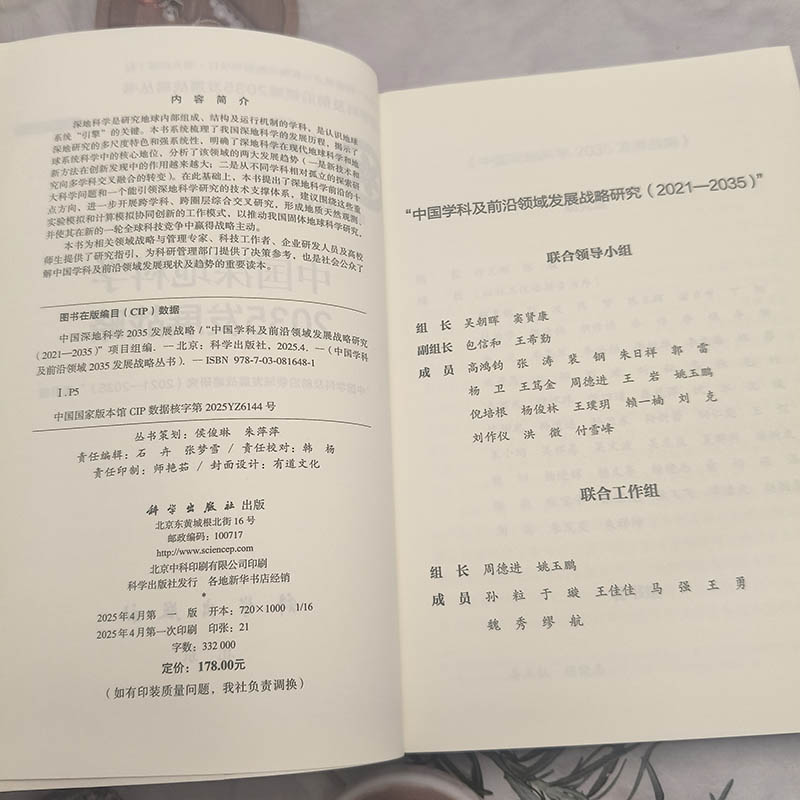 内 容 简 介
深地科学是研究地球内部组成、结构及运行机制的学科，是认识地球
系统“引擎”的关键。本书系统梳理了我国深地科学的发展历程，揭示了
深地研究的多尺度特色和强系统性，明确了深地科学在现代地球科学和地
球系统科学中的核心地位，分析了该领域的两大发展趋势（一是新技术和
新方法在创新发现中的作用越来越大；二是从不同学科相对孤立的探索研
究向多学科交叉融合的转变）。在此基础上，本书提出了深地科学前沿的十
大科学问题和一个能引领深地科学研究的技术支撑体系，建议围绕这些重
点方向，进一步开展跨学科、跨圈层综合交叉研究，形成地质天然观测、
实验模拟和计算模拟协同创新的工作模式，以推动我国固体地球科学研究，
并使其在新的一轮全球科技竞争中赢得战略主动。
本书为相关领域战略与管理专家、科技工作者、企业研发人员及高校
师生提供了研究指引，为科研管理部门提供了决策参考，也是社会公众了
解中国学科及前沿领域发展现状及趋势的重要读本。
图书在版编目（CIP）数据
中国深地科学2035发展战略 / “中国学科及前沿领域发展战略研究
（2021—2035）”项目组编. —北京：科学出版社，2025.4. —（中国学科
及前沿领域2035发展战略丛书）. —ISBN 978-7-03-081648-1
Ⅰ.P5
中国国家版本馆CIP数据核字第2025YZ6144号
丛书策划：侯俊琳 朱萍萍
责任编辑：石 卉 张梦雪 / 责任校对：韩 杨
责任印制：师艳茹 / 封面设计：有道文化
科学出版社 出版
北京东黄城根北街16号
邮政编码：100717
http://www.sciencep.com
北京中科印刷有限公司印刷
科学出版社发行 各地新华书店经销
*
2025年4月第 一 版 开本：720×1000 1/16
2025年4月第一次印刷 印张：21
字数：332 000
定价：178.00元
（如有印装质量问题，我社负责调换）
“中国学科及前沿领域发展战略研究（2021—2035）”
联合领导小组
组 长 吴朝晖 窦贤康
副组长 包信和 王希勤
成 员 高鸿钧 张 涛 裴 钢 朱日祥 郭 雷
杨 卫 王笃金 周德进 王 岩 姚玉鹏
倪培根 杨俊林 王璞玥 赖一楠 刘 克
刘作仪 洪 微 付雪峰
联合工作组
组 长 周德进 姚玉鹏
成 员 孙 粒 于 璇 王佳佳 马 强 王 勇
魏 秀 缪 航